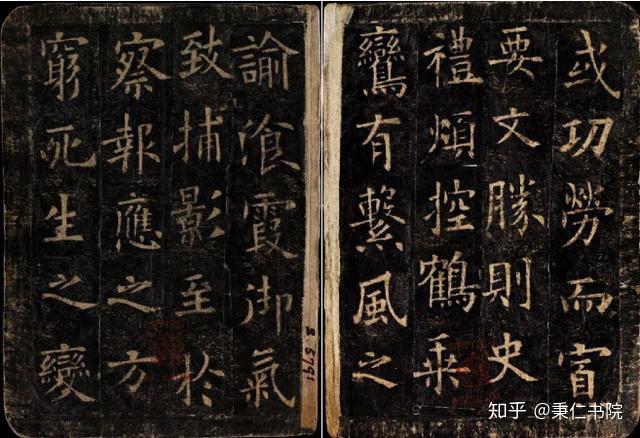 或功勞而寡
要文勝則史
禮煩控鶴乗
鸞有繫風之
諭飡霞御氣
致捕影至於
察報應之方
窮死生之變
S 5791
知乎 @秉仁书院